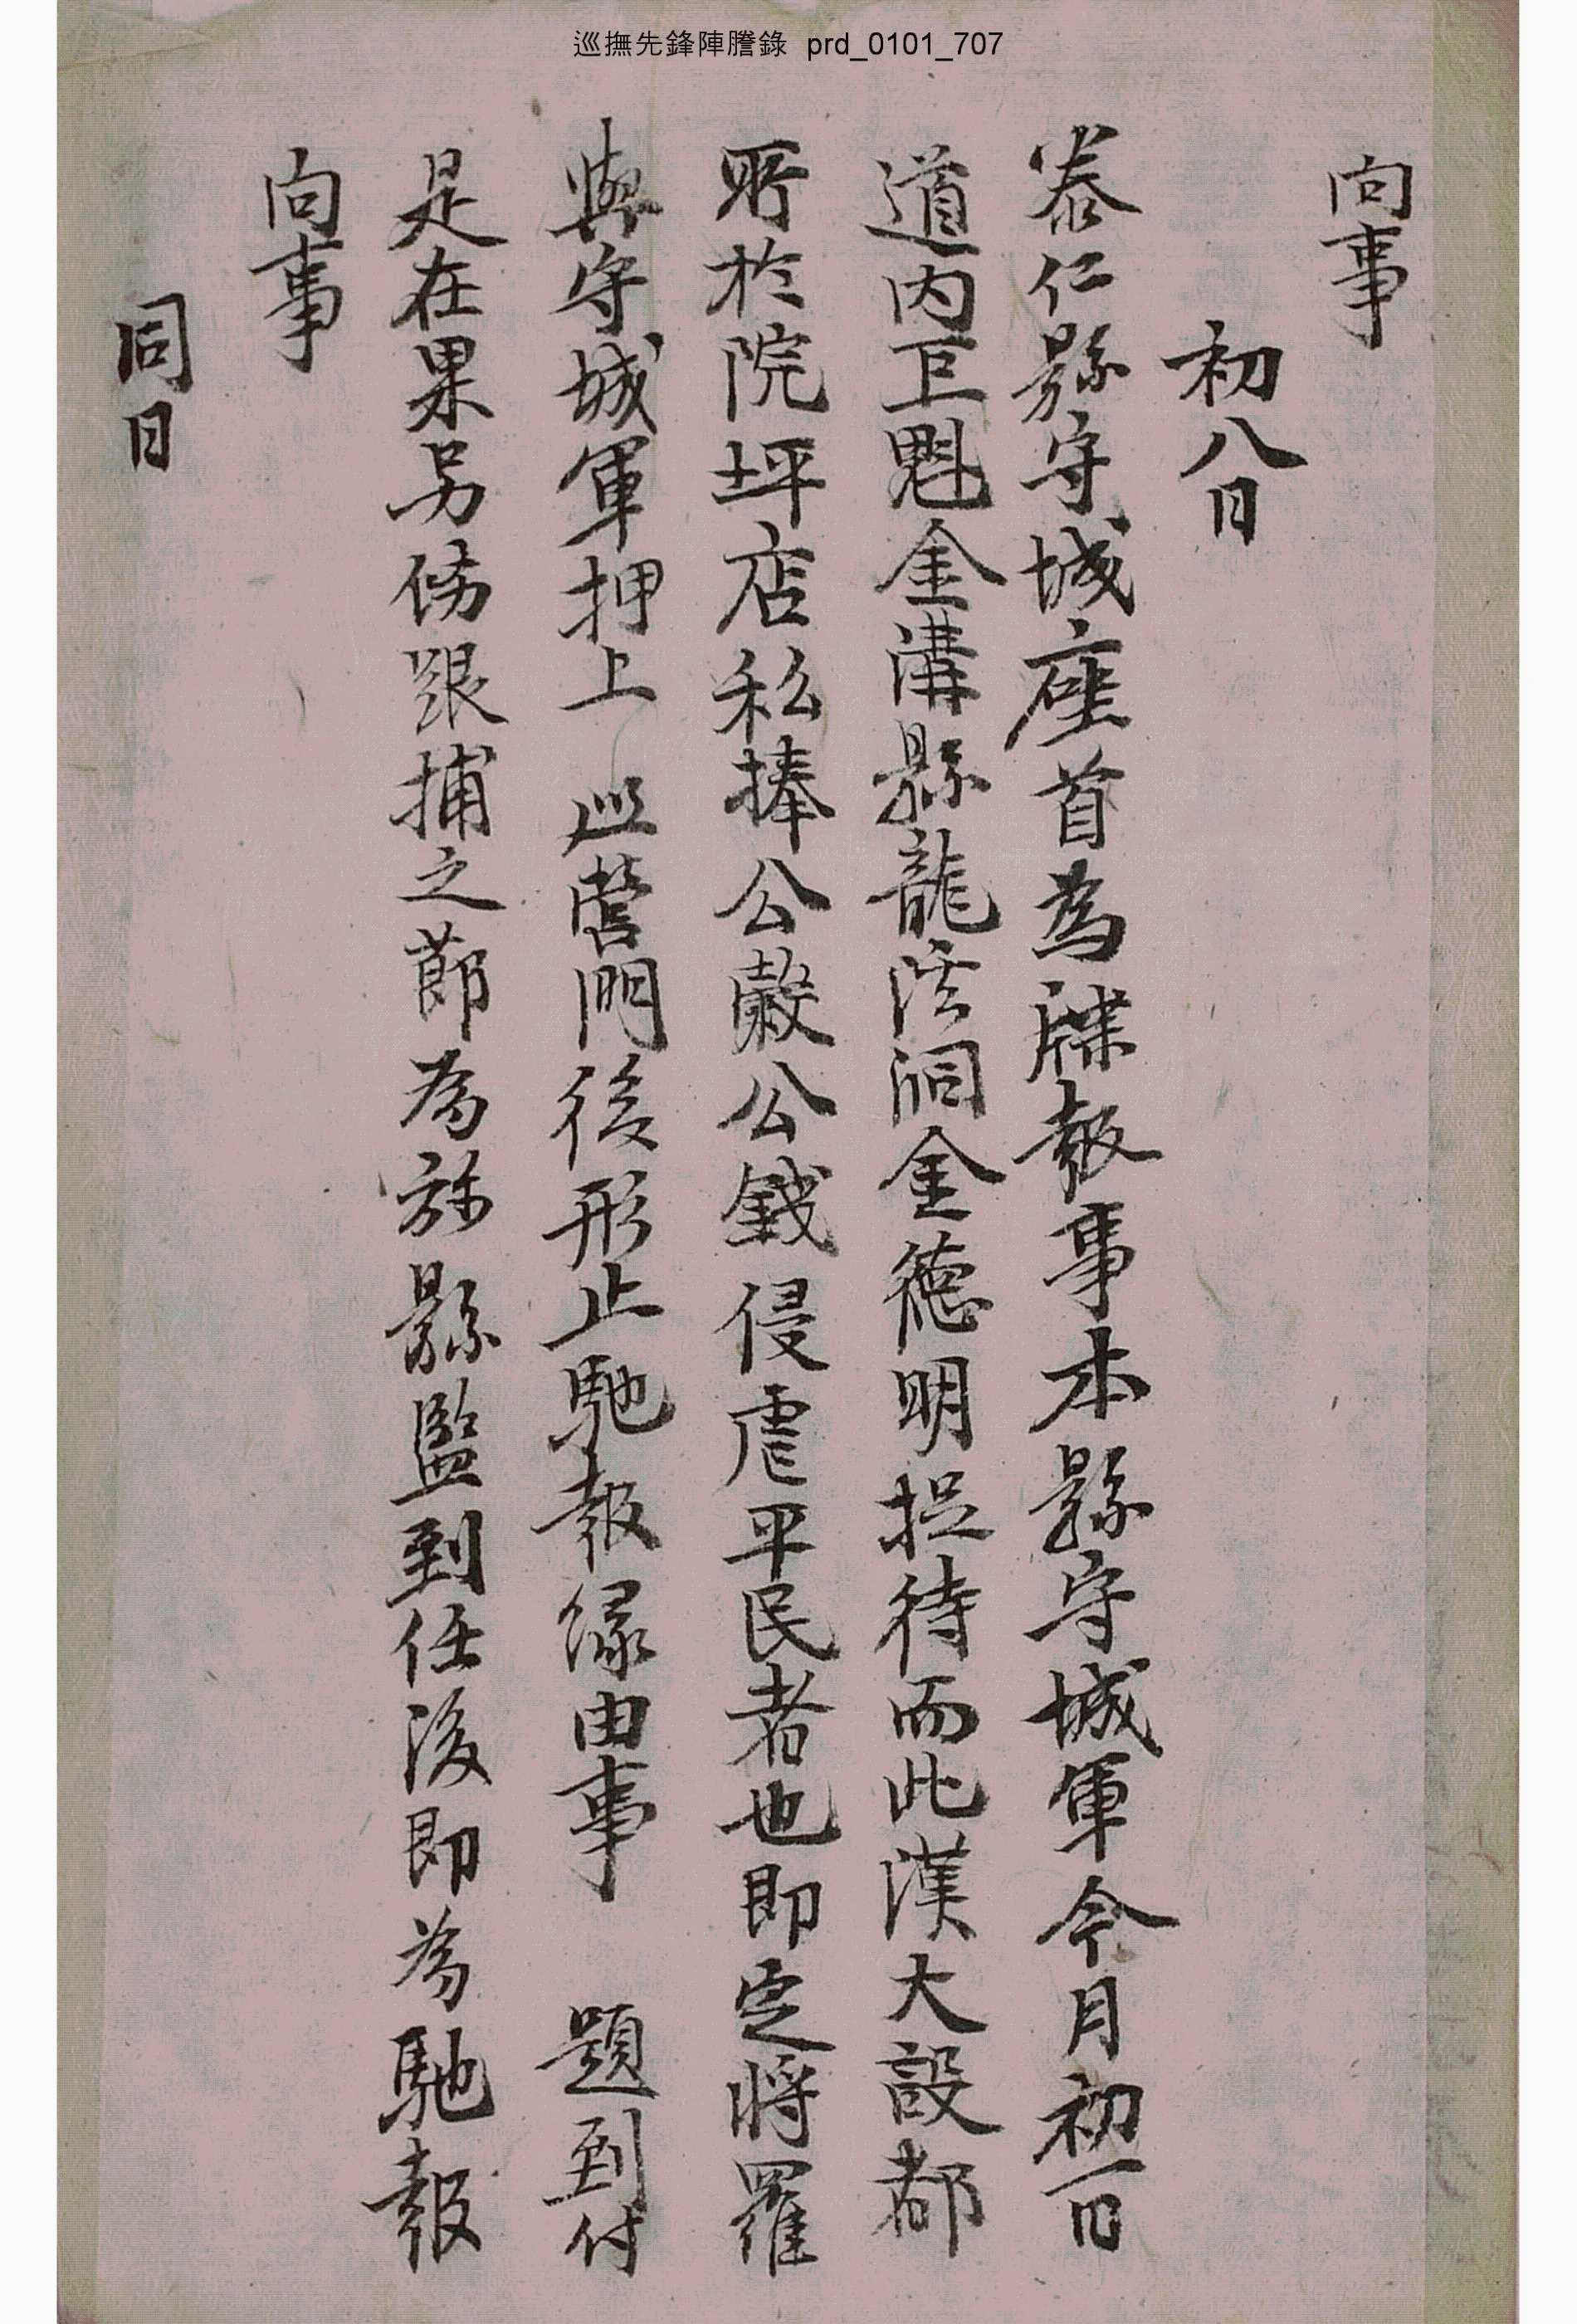 巡撫先鋒陣謄錄 prd_0101_707
向事
初八日
泰仁縣守城座首爲牒報事本縣守城軍今月初一日
道內巨魁金溝縣龍溪洞金德明捉待而此漢大設都
所於院坪店私捧公穀公錢侵虐平民者也卽定將羅
與守城軍押上 巡營門後形止馳報緣由事 題到付
是在果另飭跟捕之節爲旀縣監到任後卽爲馳報
向事
同日